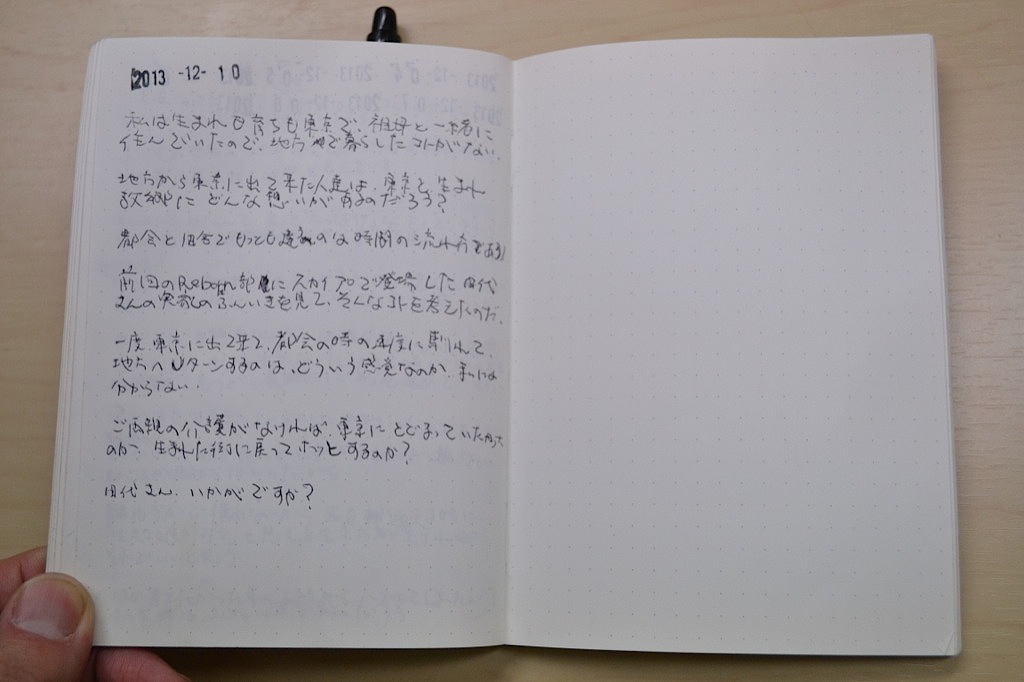 2013 -12- 10
私は生まれも育ちも東京で、祖母と一緒に
住んでいたので、地方で暮らしたコトがない。
地方から東京に出て来た人達は、東京と生まれ
故郷にどんな想いが有るのだろう?
都会と田舎でもっとも違うのは時間の流れ方である
前回のReborn部にスカイプで登場した田代
さんの実家のふんいきを見て、そんなコトを考えたのだ。
一度東京に出て来て、都会の時の速度に馴れて、
地方へUターンするのは、どういう感覚なのか、私には
分からない。
ご両親の介護がなければ、東京にとどまっていたかった
のか、生まれた街に戻ってホッとするのか?
田代さん、いかがですか?